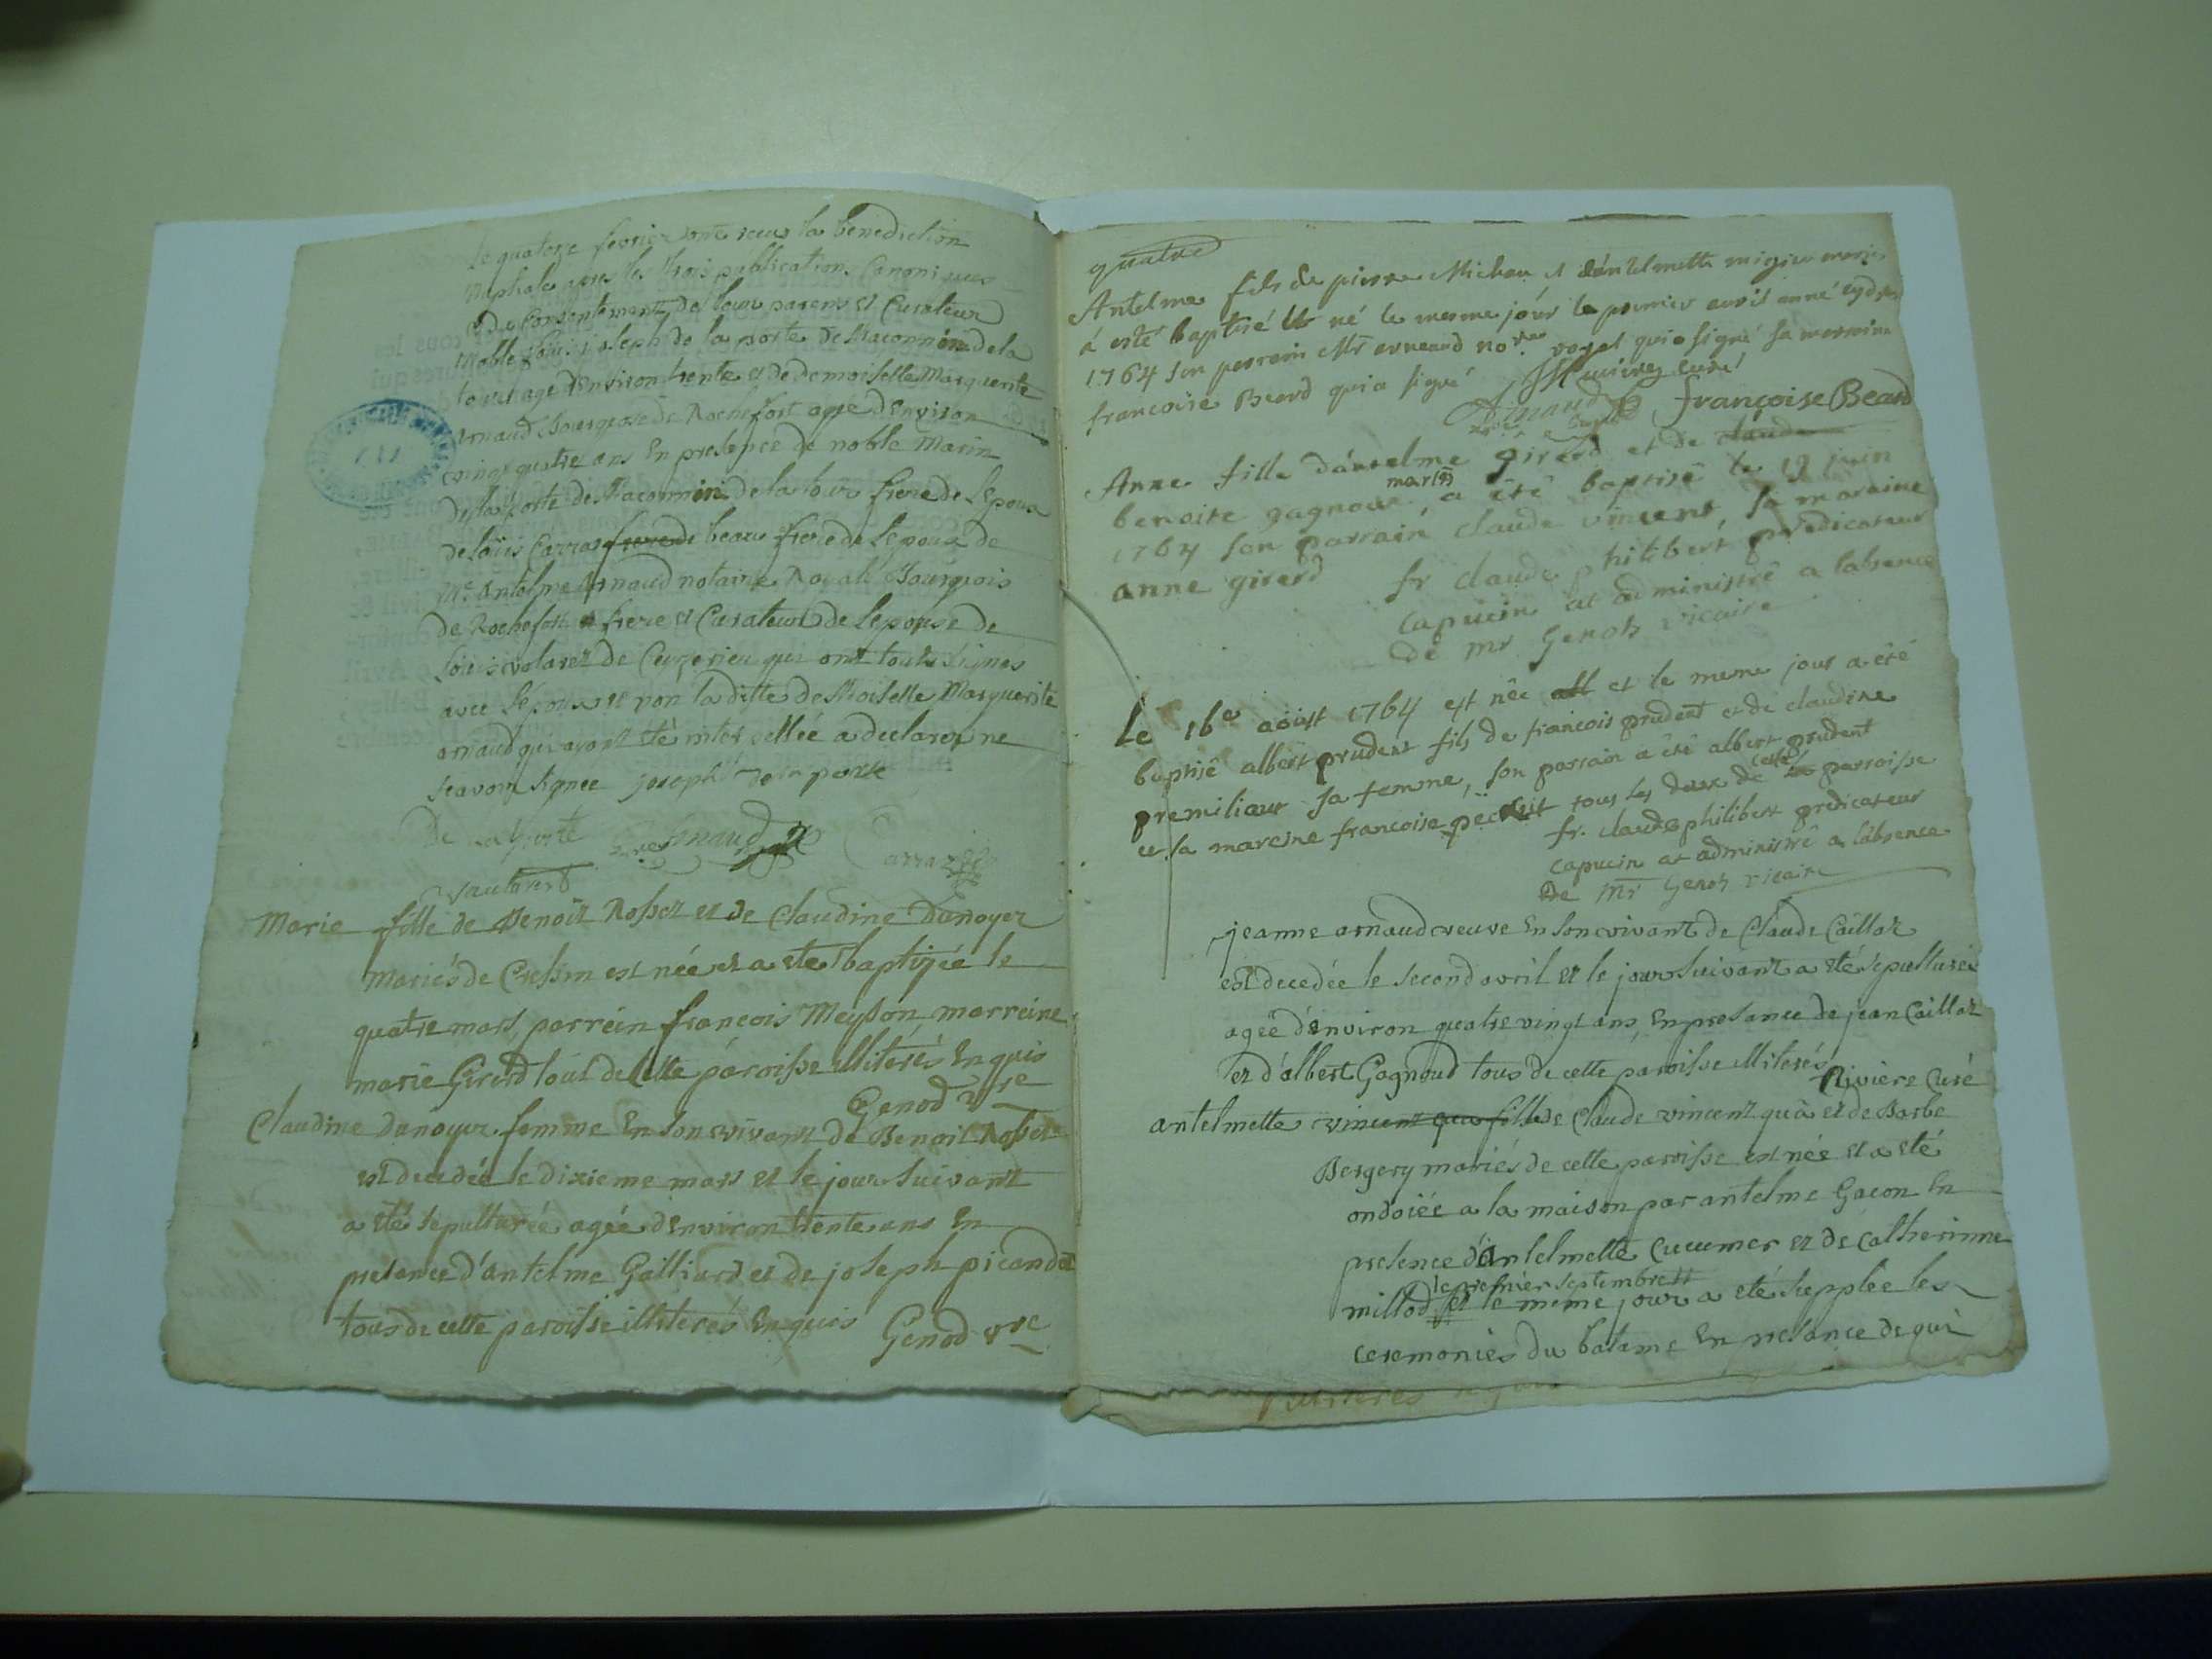 Le quatorze fevrier ont receu la benediction
nuptiale apres les trois publications Canoniques
et du Consentement de leur parens et Curateur
Noble Louis joseph de la porte de de la
tour agé d'Environ trente et de demoiselle Marguerite
arnaud Bourgoise de Rochefort agée d'Environ
vingt quatre ans En presence de noble Marin
de la porte de de la tour frere de l'Epoux
de Loüis Carraz frere de beau frere de l'epoux de
Me Antelme arnaud notaire Royal Bourgois
de Rochefort frere et Curateur de l'epouse de
Loüis de Ceyzerieu qui ont tous signés
avec l'epoux et non la ditte demoiselle Marguerite
arnaud qui ayant été interpellée a declaré ne
scavoir signée joseph de la porte
De la porte arnaud Carraz
Marie fille de Benoit Rosset et de Claudine Danoyer
mariés de Cressin est née et a eté baptizée le
quatre mars, parrein francois Meyson marreine
marie Girerd tous de cette paroisse illiterés Enquis
Genod vre
Claudine danoyer femme En son vivant de Benoit Rosset
est decedée le dixieme mars et le jour suivant
a eté sepulturée agée d'Environ trente ans En
presence d'antelme Galliard et de joseph picandet
tous de cette paroisse illiterés Enquis Genod vre
quatre
Antelme fils de pierre Michau et d'antelmette mariés
à esté baptisé né le mesme jour le premier avril anné
1764 son perrain Mr arneaud nore royal qui a signé sa merraine
francoise Beard qui a signé Riviere curé
Arnaud françoise Beard
Anne fille d'antelme girerd et de claude
benoite gagnoux mariés a été baptisé le 19 juin
1764 son parrain claude vincent, sa maraine
anne girerd fr claude philibert predicateur
capucin at administré a l'absence
de mr Genoz vicaire
Le 16e aoüst 1764 est née all et le meme jour a été
baptisé albert prudent fils de francois prudent et de claudine
premilieur sa femme, son parrain a été albert prudent
et sa mareine francoise tous les deux de cette parroisse
fr. claude philibert predicateur
capucin at administré a l'absence
de Mr Genoz vicaire
jeanne arnaud veuve En son vivant de Claude Caillat
est decedée le second avril et le jour suivant a eté sepulturée
agée d'environ quatre vingt ans, En presance de jean Caillat
et d'albert Gagnoud tous de cette paroisse illiterés Riviere Curé
antelmette vincent qua fille de Claude vincent qua et de Barbe
Bergery mariés de cette paroisse est née et a eté
ondoiée a la maison par antelme Gacon En
presence d'antelmette Cucumer et de Catherinne
millod le premier septembre et le meme jour a eté supplée les
ceremonies du batame En presance de qui